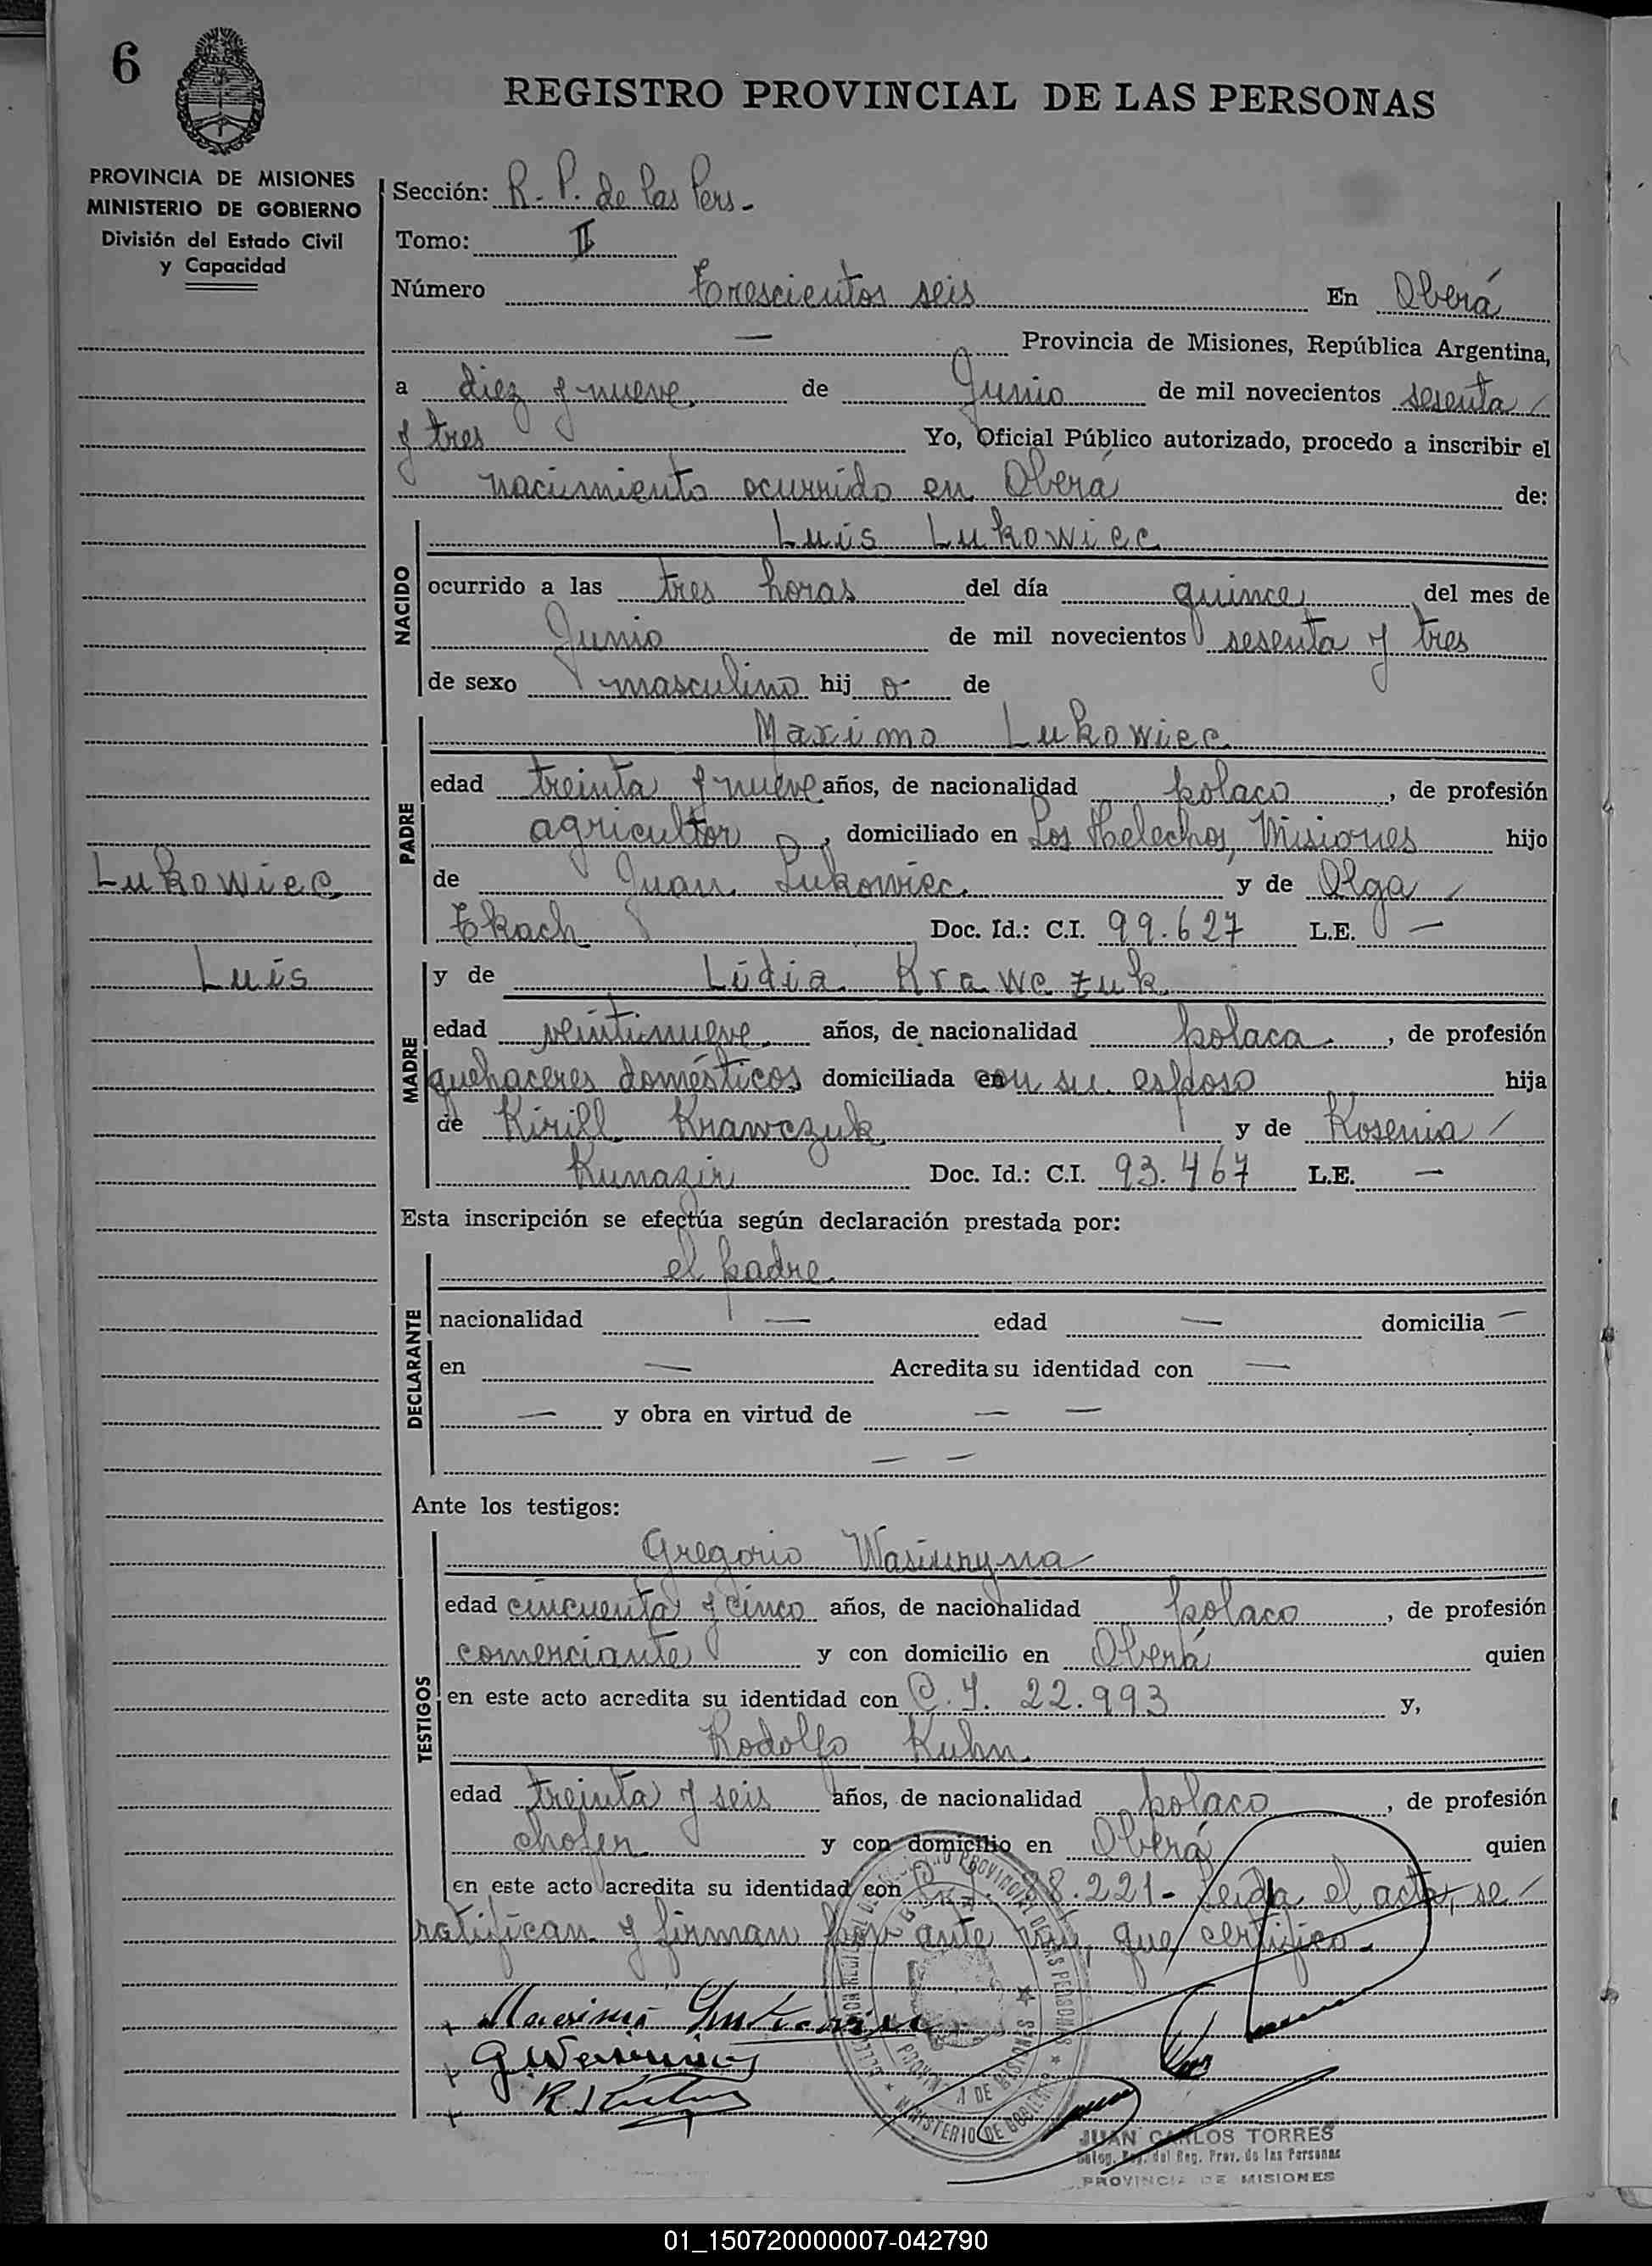 6
REGISTRO PROVINCIAL DE LAS PERSONAS
PROVINCIA DE MISIONES
MINISTERIO DE GOBIERNO
División del Estado Civil
y Capacidad
Sección: R. P. de las Pers.
Tomo: II
Número trescientos seis En Oberá
— Provincia de Misiones, República Argentina,
a diez y nueve de Junio de mil novecientos sesenta
y tres Yo, Oficial Público autorizado, procedo a inscribir el
nacimiento ocurrido en Oberá de:
NACIDO
Luis Lukowiec
ocurrido a las tres horas del día quince del mes de
Junio de mil novecientos sesenta y tres
de sexo masculino hijo de
PADRE
Maximo Lukowiec
edad treinta y nueve años, de nacionalidad polaco, de profesión
agricultor, domiciliado en Los Helechos, Misiones hijo
Lukowiec
de Juan Lukowiec y de Olga
Tkach Doc. Id.: C.I. 99.627 L.E. —
Luis
MADRE
y de Lidia Krawczuk
edad veintinueve años, de nacionalidad polaca, de profesión
quehaceres domésticos domiciliada con su esposo hija
de Kirill Krawczuk y de Kosenia
Kunazir Doc. Id.: C.I. 93.467 L.E. —
Esta inscripción se efectúa según declaración prestada por:
DECLARANTE
el padre
nacionalidad — edad — domicilia —
en — Acredita su identidad con —
— y obra en virtud de — —
— —
Ante los testigos:
TESTIGOS
Gregorio
edad cincuenta y cinco años, de nacionalidad polaco, de profesión
comerciante y con domicilio en Oberá quien
en este acto acredita su identidad con C.I. 22.993 y,
Rodolfo Kuhn
edad treinta y seis años, de nacionalidad polaco, de profesión
chofer y con domicilio en Oberá quien
en este acto acredita su identidad con 8.221- Leída el acta, se
ratifican y firman por ante mí, que certifico.
MINISTERIO DE GOBIERNO
JUAN CARLOS TORRES
del Reg. Prov. de las Personas
PROVINCIA DE MISIONES
01_150720000007-042790